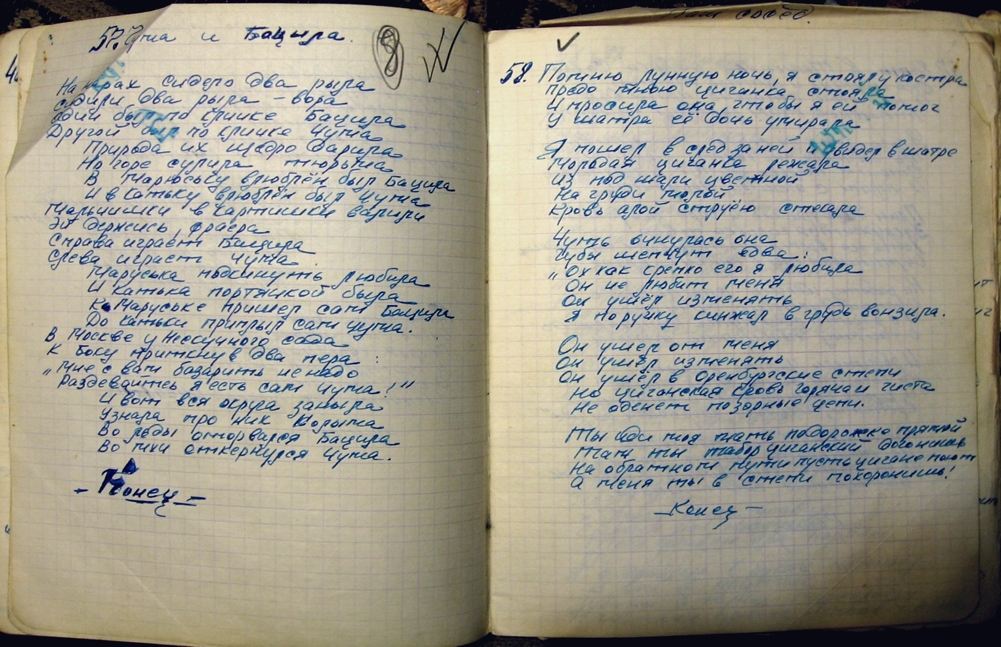 57. Чума и Бацила.
8
На нарах сидело два рыла
сидели два рыла – вора
Один был по кличке Бацила
Другой был по кличке Чума
Природа их щедро дарила
Но горе сулила тюрьма
В Марюську влюблён был Бацила
И в Катьку влюблён был Чума
Мальчишки в картишки
Эй держись, фраера
Справа играет Бацила
Слева играет Чума
Маруська подкинуть любила
И Катька портянкой была
К Маруське пришёл сам Бацила
До Катьки приплыл сам Чума.
В Москве у Нескучного сада
К боку приткнув два пера :
„Мне с вами базарить не надо
Раздевайтесь я есть сам Чума!"
И вот вся округа заныла
Узнала про них
Во льды оторвался Бацила
Во тьму откернулся Чума.
– Конец –
58. Помню лунную ночь, я стоял у костра
Предо мною циганка стояла
И просила она, чтобы я ей помог
У шатра её дочь умирала
Я пошел в след за ней и увидел в шатре
Молодая циганка лежала
Из под шали цветной
На груди молодой
Кровь алой струёю стекала
Чуть очнулась она
Губы шепчут едва:
„Ох как крепко его я любила
Он не любит меня
Он ушёл изменять
Я по ручку кинжал в грудь вонзила.
Он ушел от меня
Он ушёл изменять
Он ушёл в Оренбургские степи
Но циганская кровь горяча и чиста
Не оденет позорные цепи.
Ты иди моя мать по дорожке прямой
Там ты табор циганский догонишь
На обратном пути пусть цигане поют
А меня ты в степи похоронишь!
– Конец –